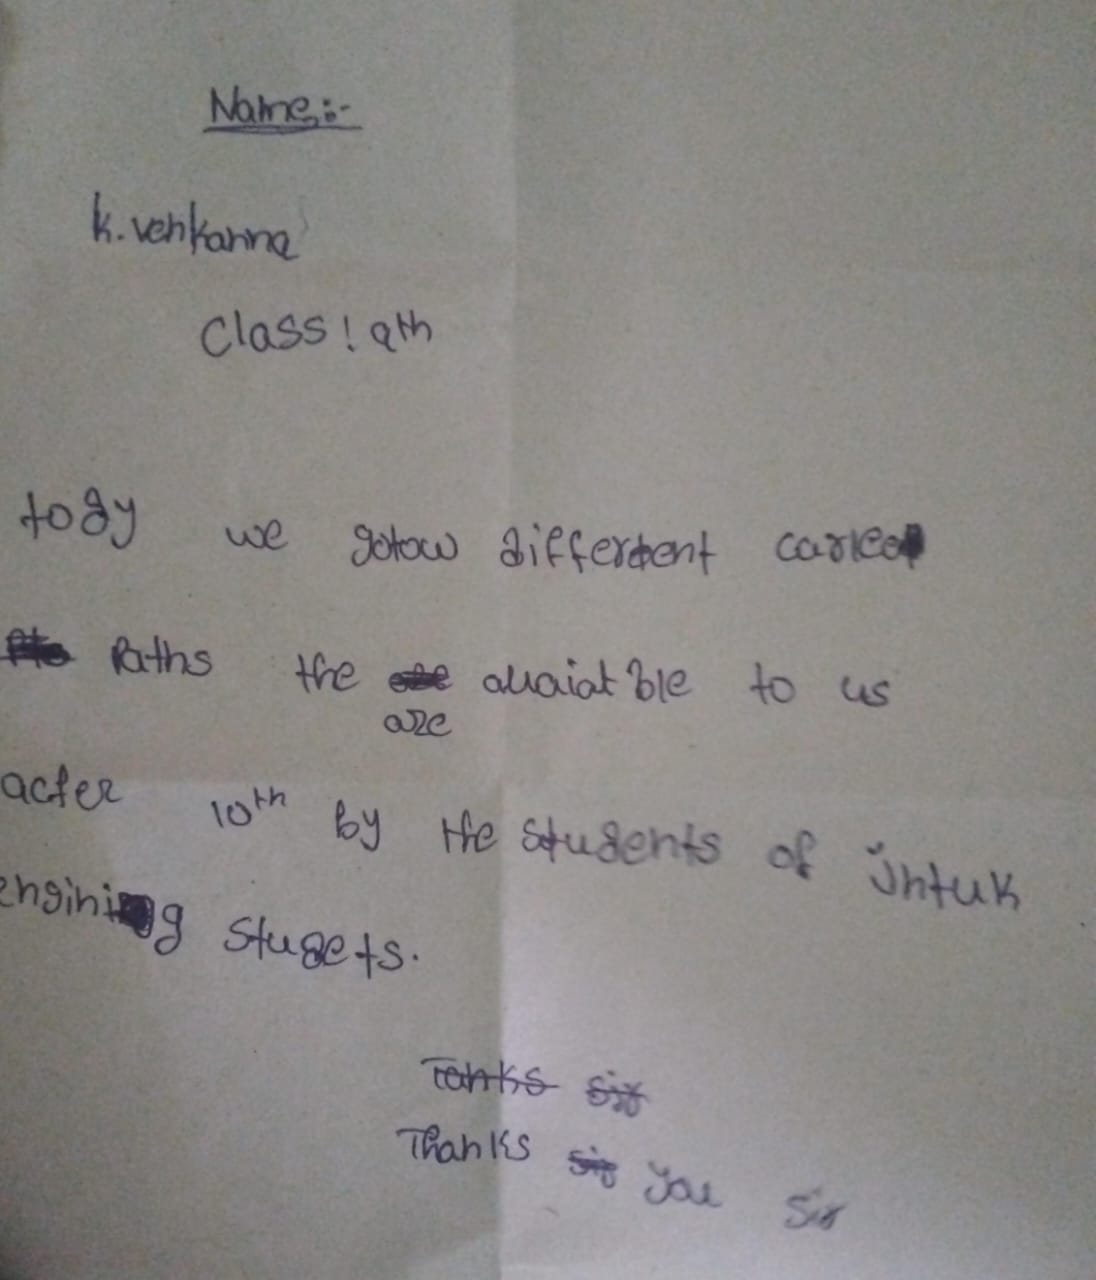 Name:-
K. venkanna
Class: 9th
tody we gotow differtent carieer
Paths the are avaiatble to us
acter 10th by the students of jntuk
engining studets.
Tanks sir
Thanks you Sir